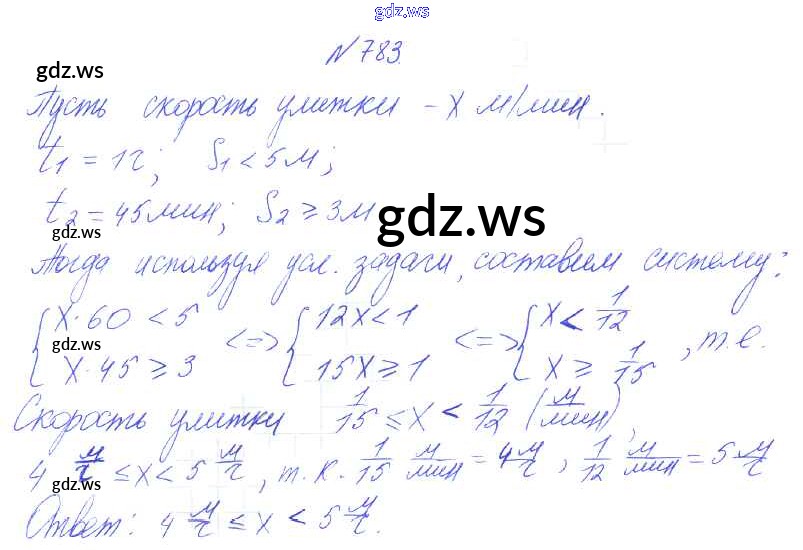 gdz.ws
N 783.
gdz.ws
Пусть скорость улитки - x м/мин.
t₁ = 1ч; S₁ < 5м;
t₂ = 45мин; S₂ ≥ 3м
gdz.ws
gdz.ws
Тогда используя усл. задачи, составим систему:
{ x·60 < 5 <=> { 12x < 1 <=> { x < 1/12
x·45 ≥ 3 15x ≥ 1 x ≥ 1/15 , т.е.
gdz.ws
Скорость улитки 1/15 ≤ x < 1/12 (м/мин),
4 м/ч ≤ x < 5 м/ч, т.к. 1/15 м/мин = 4 м/ч, 1/12 м/мин = 5 м/ч
gdz.ws
Ответ: 4 м/ч ≤ x < 5 м/ч.